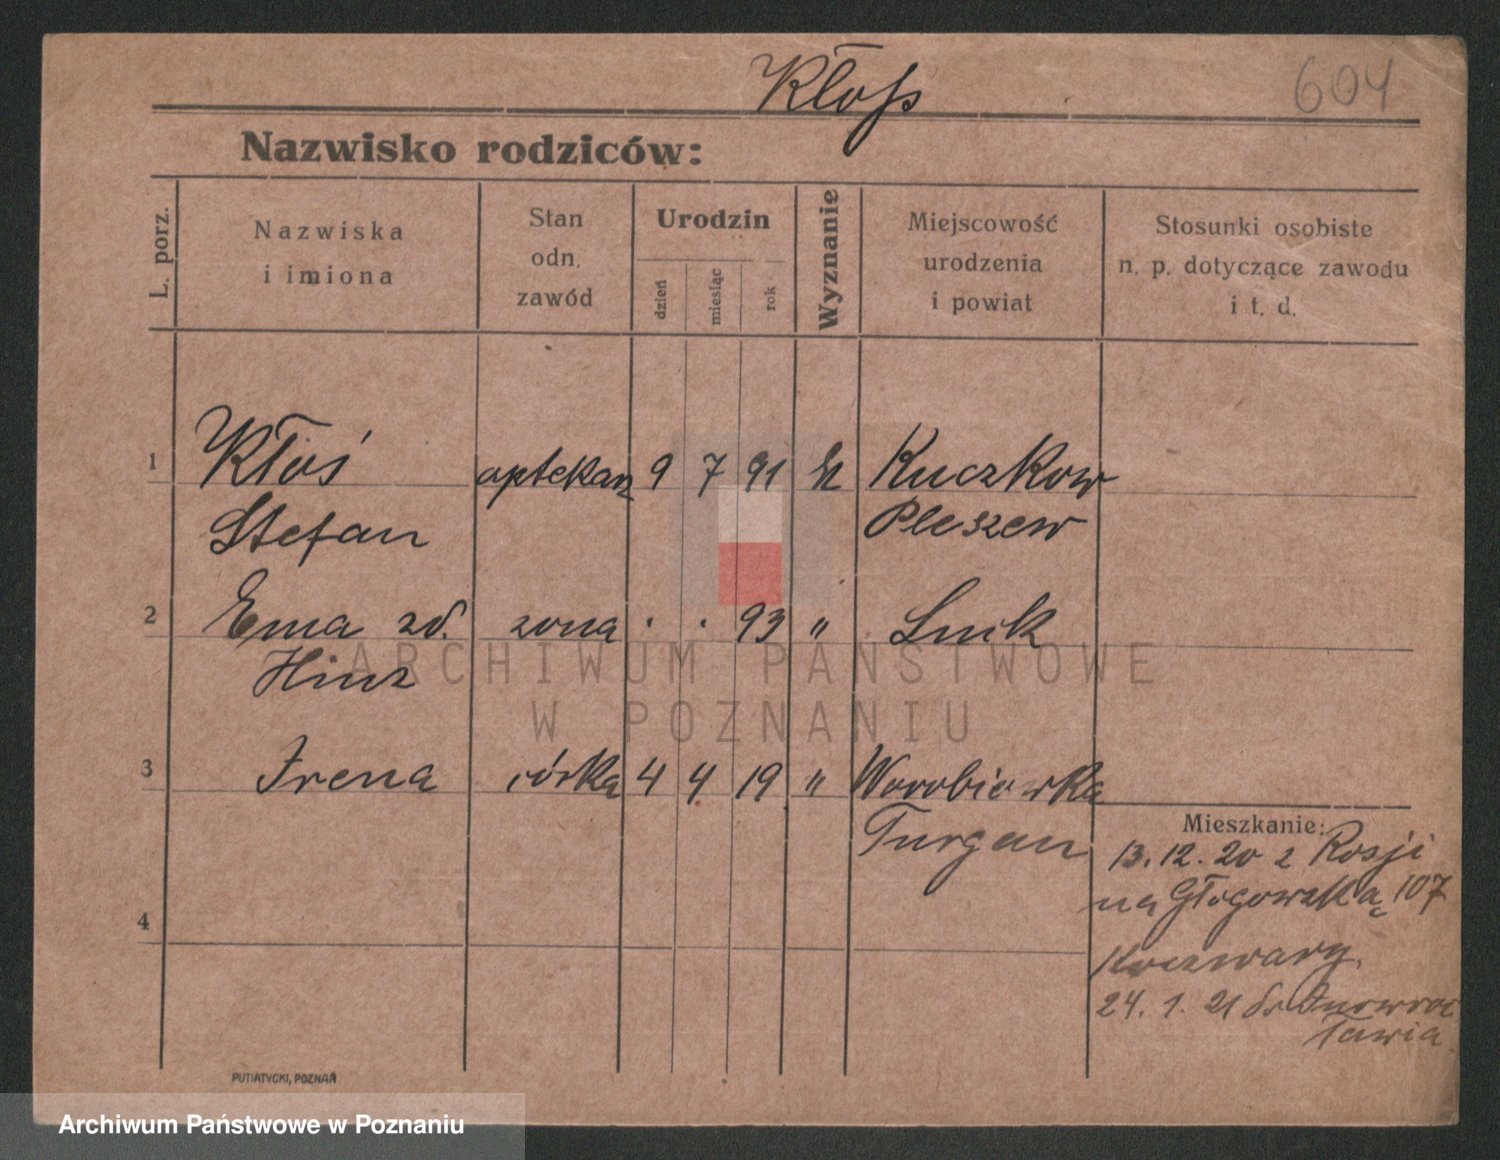 Kłoss
604
Nazwisko rodziców:
L. porz.
Nazwiska
i imiona
Stan
odn.
zawód
Urodzin
dzień
miesiąc
rok
Wyznanie
Miejscowość
urodzenia
i powiat
Stosunki osobiste
n. p. dotyczące zawodu
i t. d.
1 Kłoś aptekarz 9 7 91 Kuczkow
Stefan Pleszew
2 Ema zd. zona · · 93 " Łuck
Hinz
3 Irena córka 4 4 19 " Worobiewka
Turgan
4
Mieszkanie:
13.12.20 z Rosji
na Głogowską 107
24.1.21 do Inowroc
ławia
PUTIATYCKI, POZNAŃ
ARCHIWUM PAŃSTWOWE
W POZNANIU
Archiwum Państwowe w Poznaniu